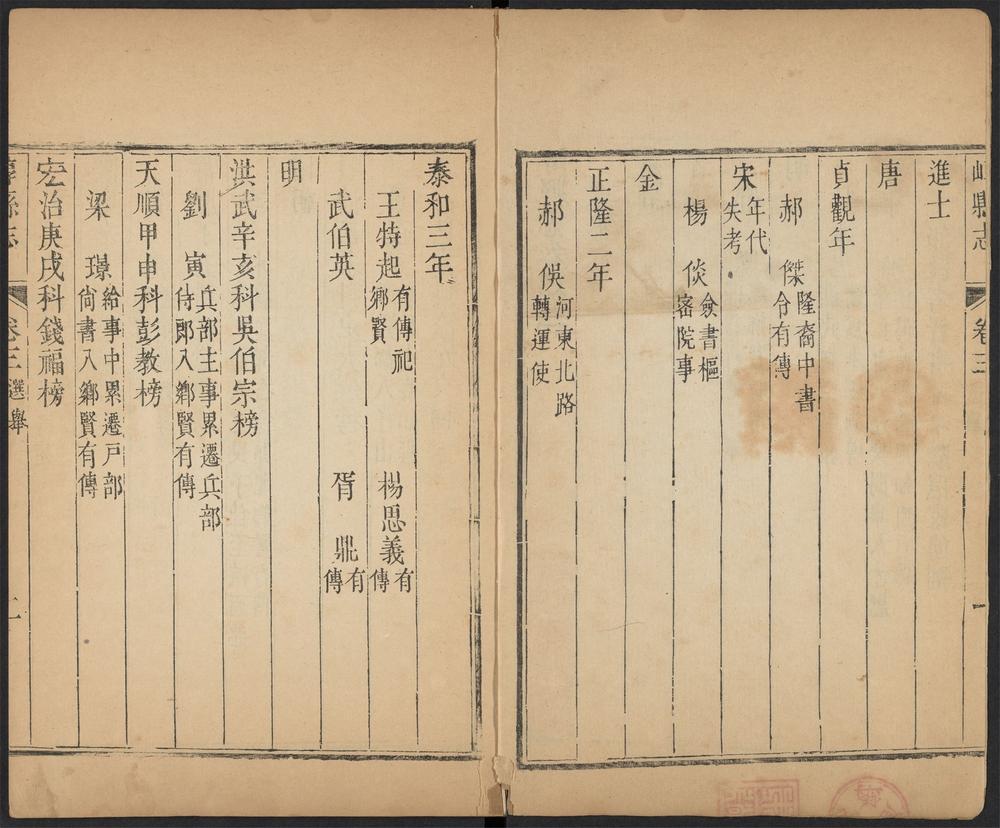 崞縣志 卷三 一
進士
唐
貞觀年
郝傑 隆裔中書令有傳
宋 年代失考
楊倓 僉書樞密院事
金
正隆二年
郝俁 河東北路轉運使
泰和三年
王特起 有傳祀鄉賢 楊思義 有傳
武伯英 胥鼎 有傳
明
洪武辛亥科吳伯宗榜
劉寅 兵部主事累遷兵部侍郎入鄉賢有傳
天順甲申科彭教榜
梁璟 給事中累遷戶部尚書入鄉賢有傳
宏治庚戌科錢福榜
崞縣志 卷三 選舉 二